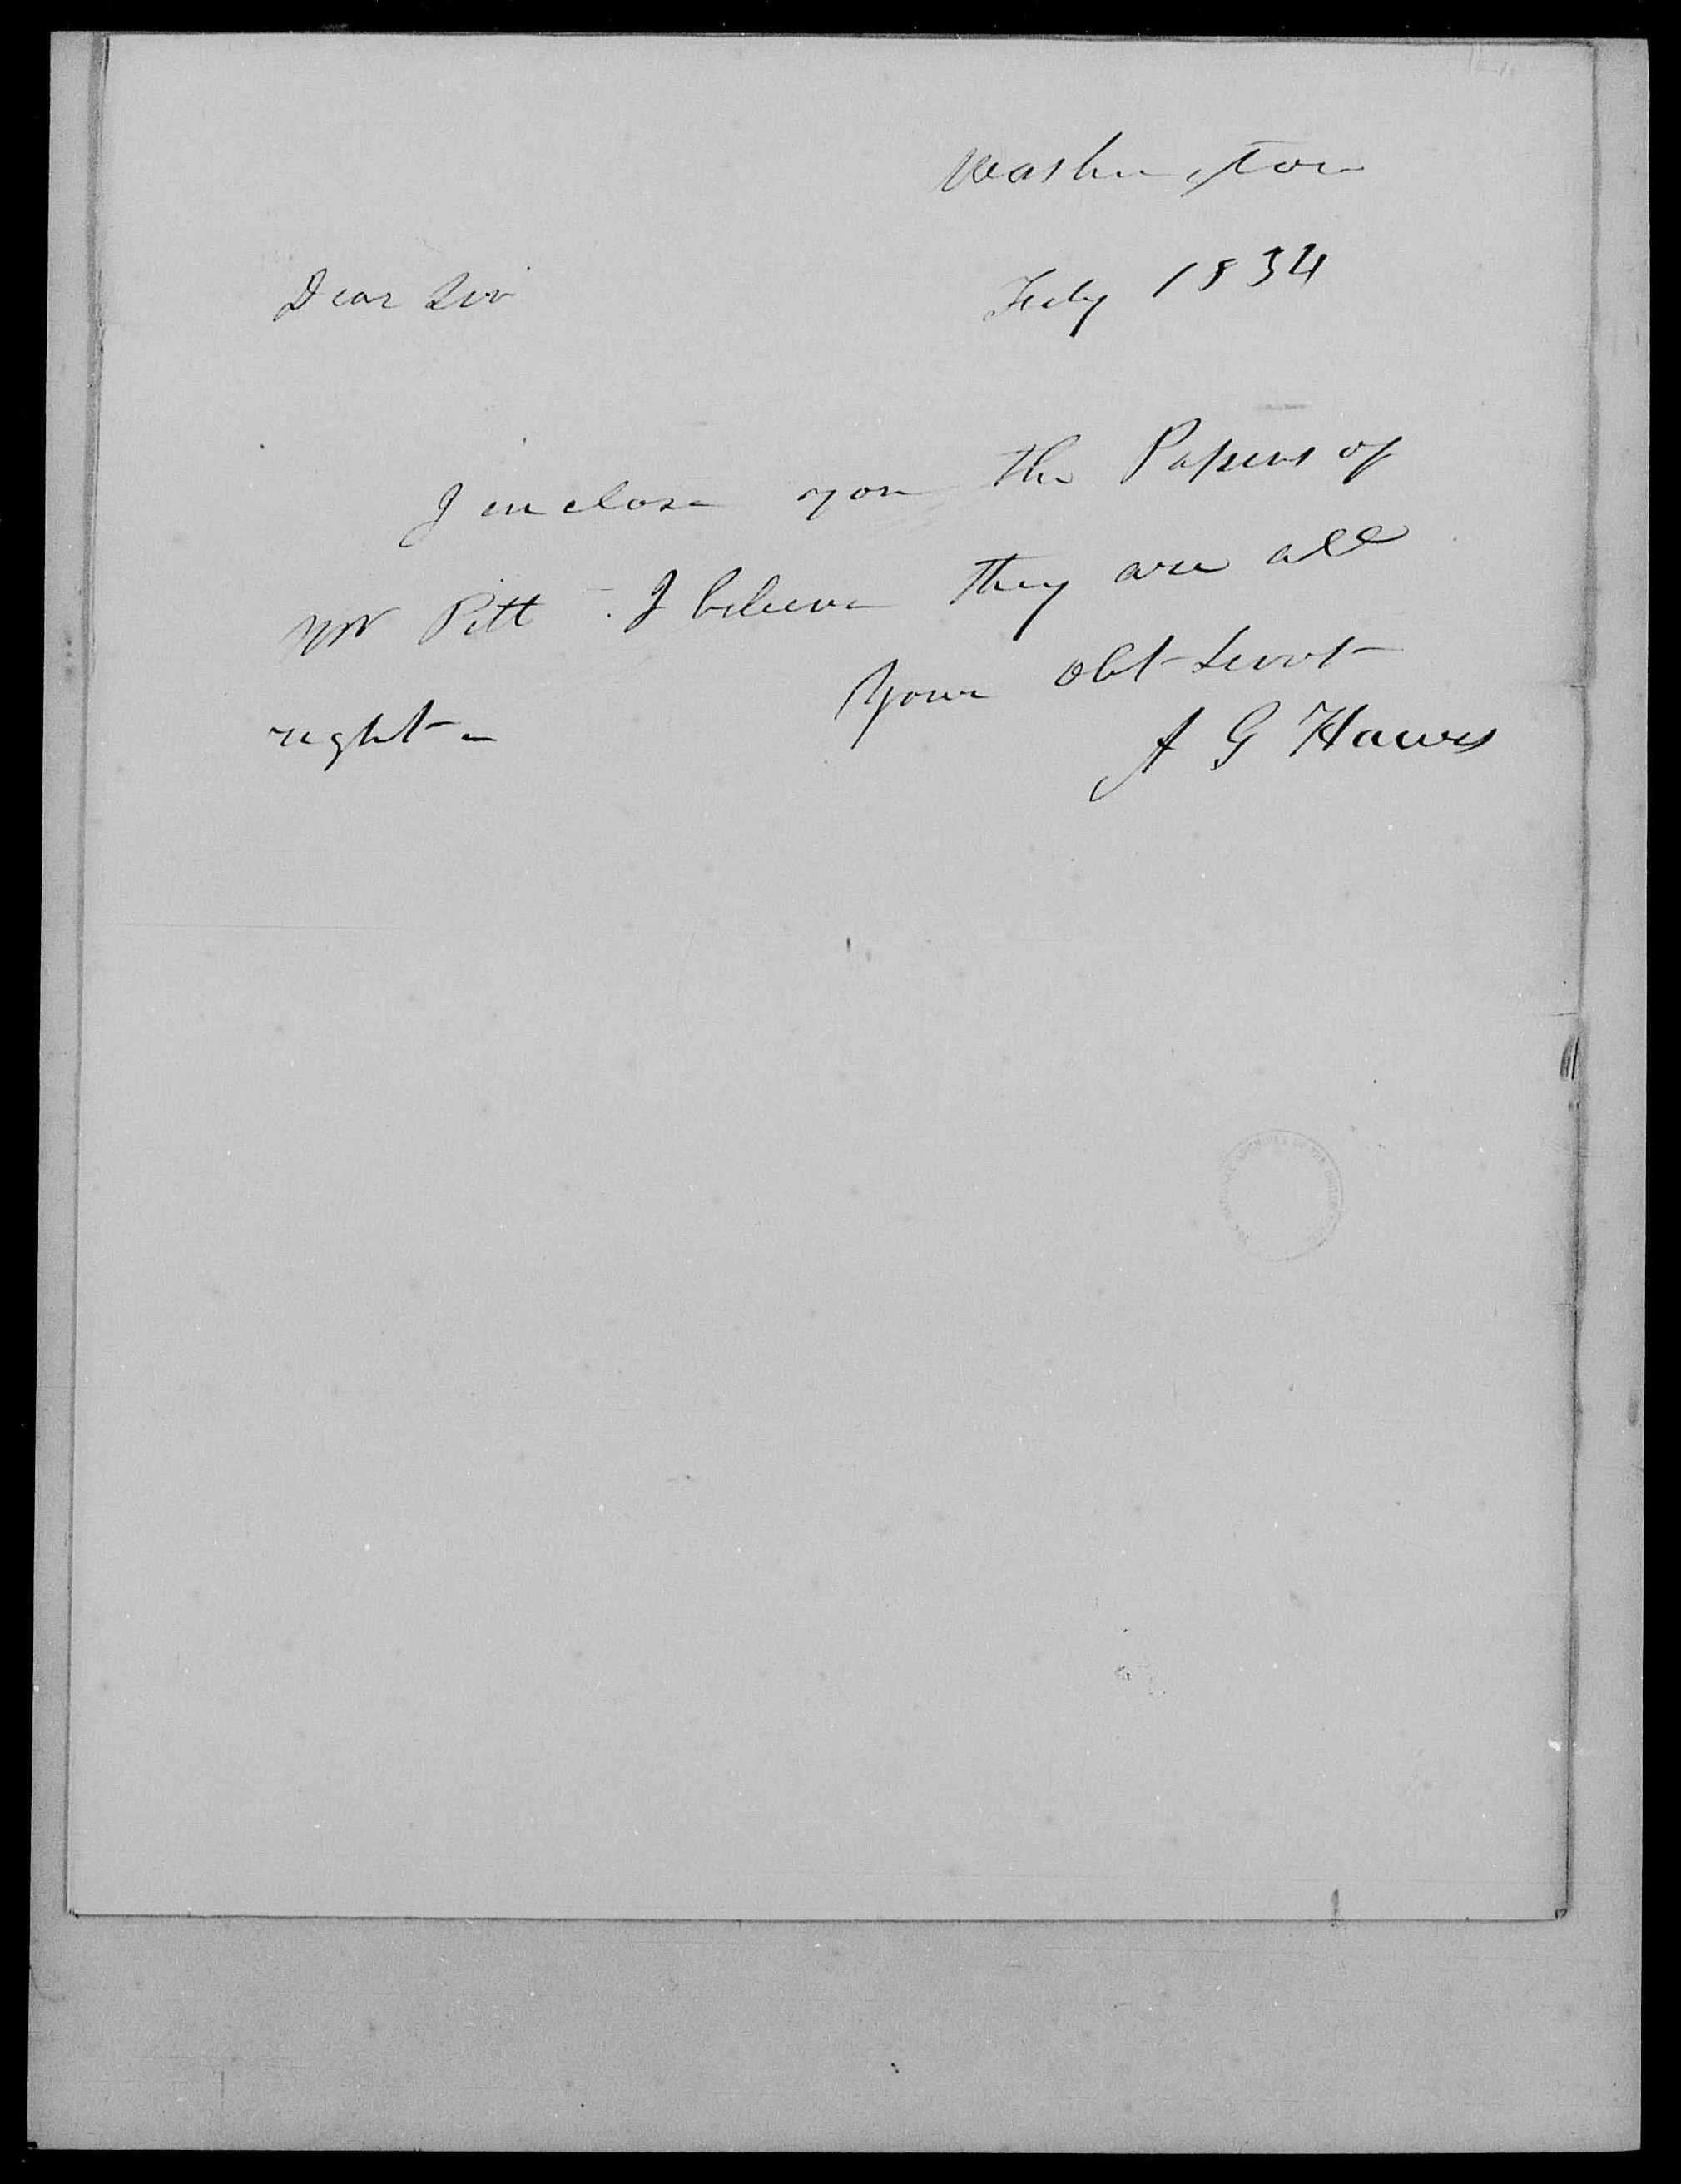 Washington
July 1834
Dear Sir
I enclose you the Papers of
Mr Pitt - I believe they are all
right -
Your Obt Servt
A G Hawes
ARCHIVES OF THE UNITED